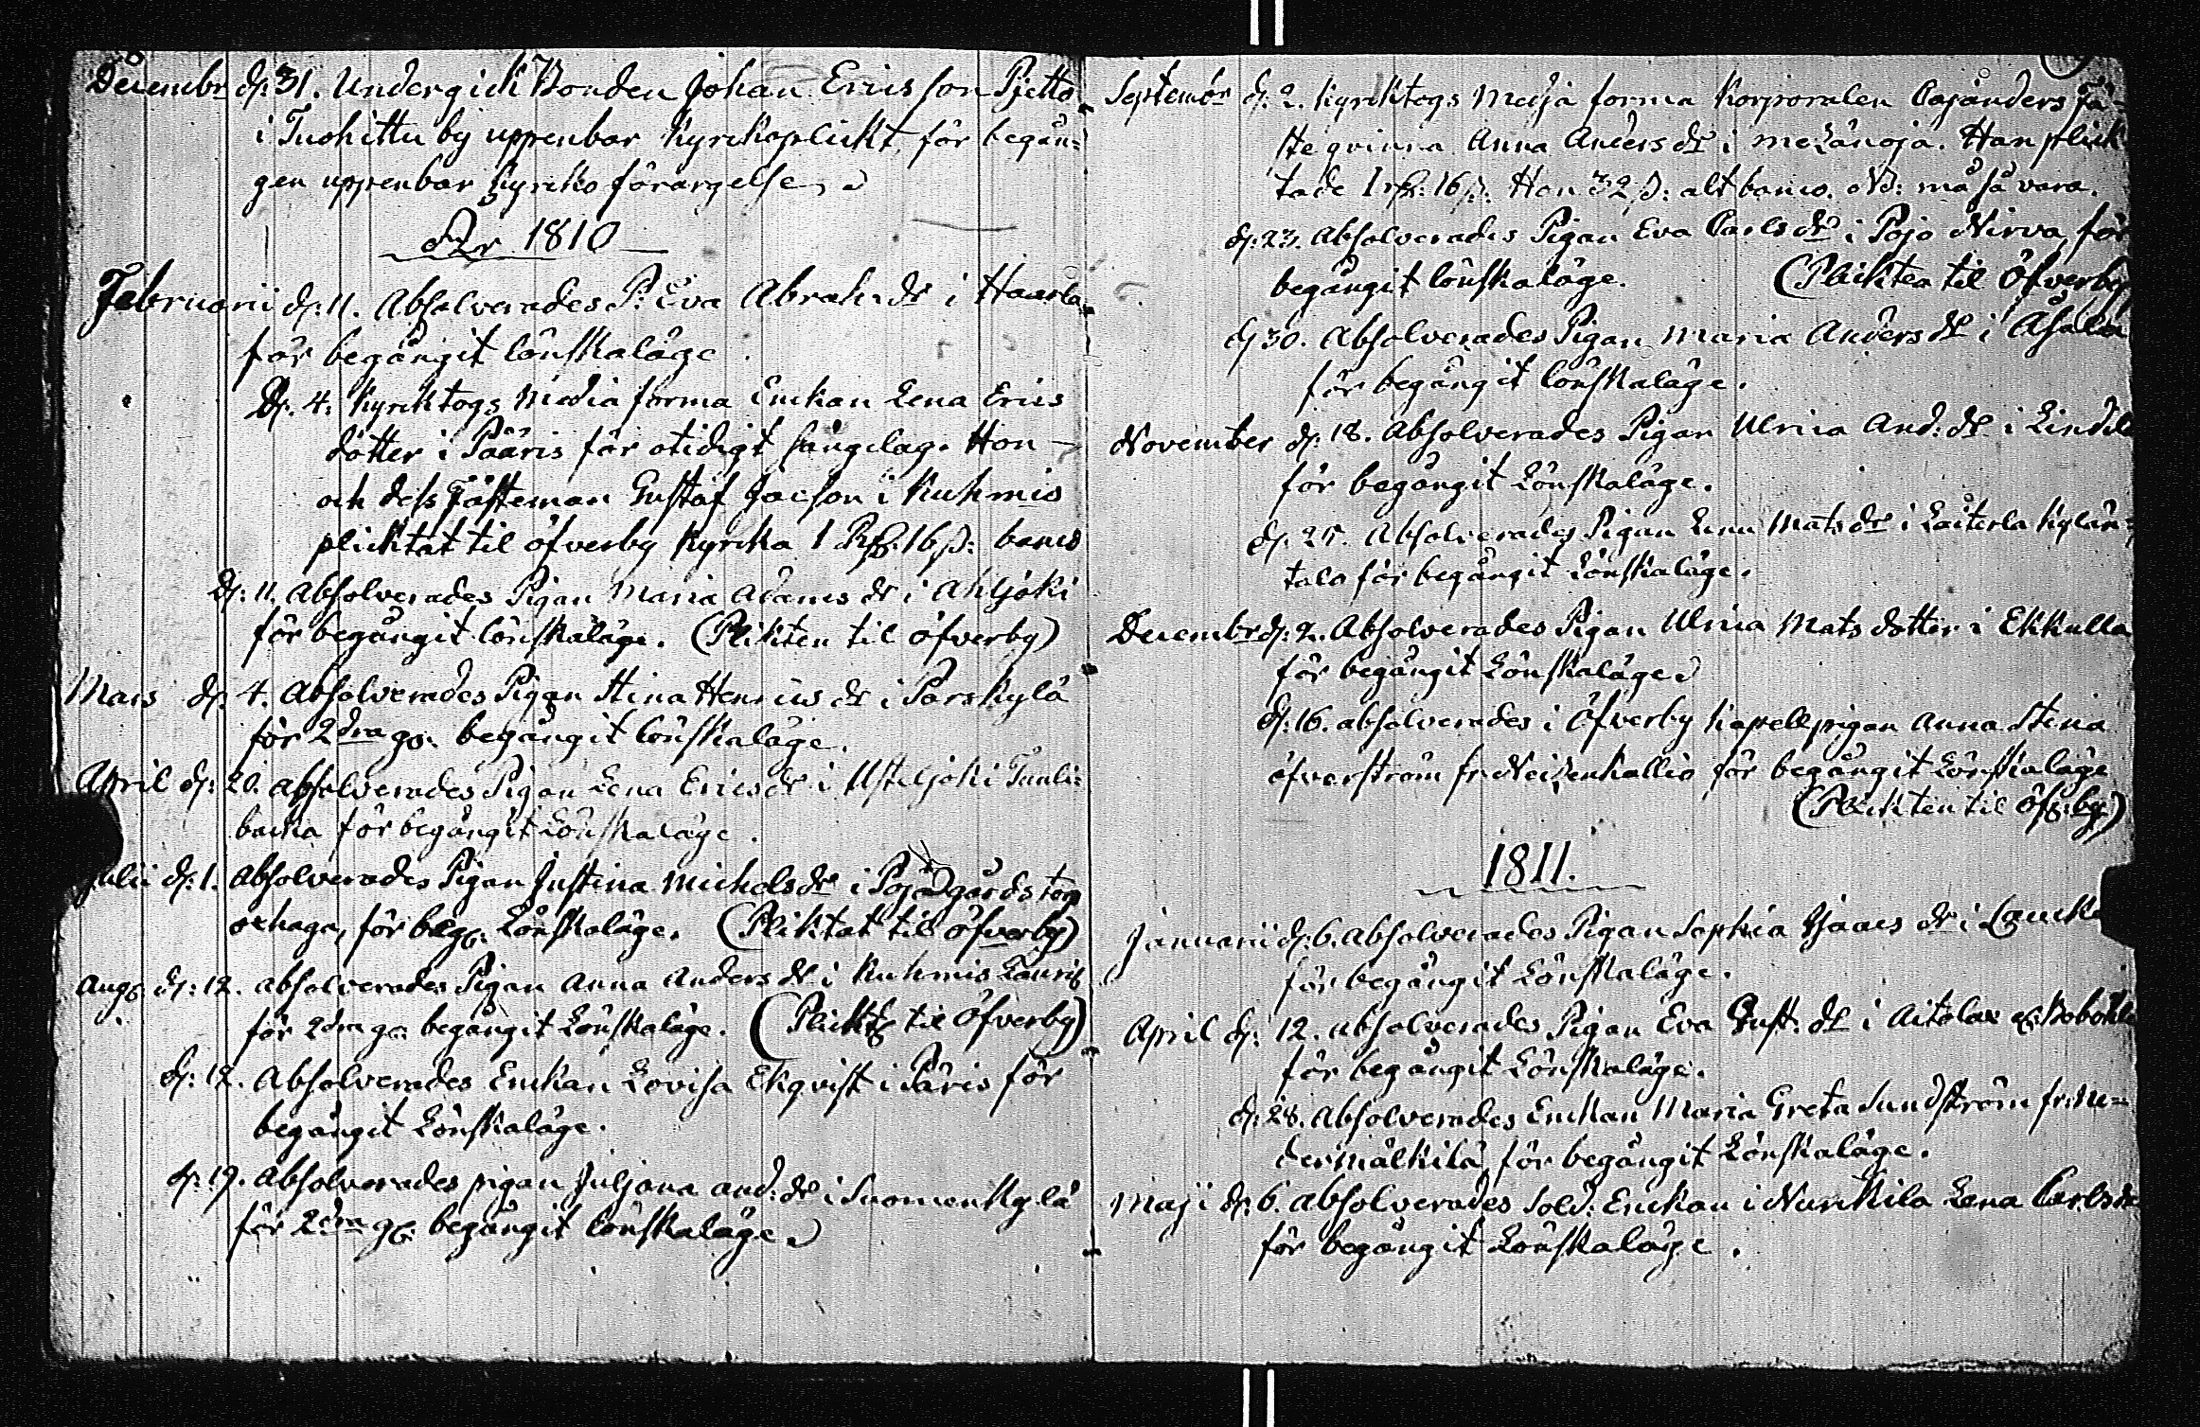 Decembr d: 31. Undergick Bonden Johan Ericsson Pjetto
i Tuohittu by uppenbar Kyrkoplickt, för begån=
gen uppenbar Kyrko förargelse.
År 1810
Februarii d: 11. Absolverades P: Eva Abrah: dr i Haarla
för begångit lönskaläge.
D: 4. Kyrcktogs Media forma Enckan Lena Erics
dotter i Pääris för otidigt sänge­lag. Hon
och dess Fästeman Gustaf Jacson i Kuhmis
plicktat til öfverby Kyrcka 1 Rß: 16 s: banco
D: 11. Absolverades Pigan Maria Adams dr i Ahljoki
för begångit lönskaläge. (Plikten til öfverby)
Mars d: 4. Absolverades Pigan Stina Henrics dr i Parskylä
för 2dra gg: begångit lönskaläge.
April d: 20. Absolverades Pigan Lena Erics dr i Ustuljoki Tunli=
backa för begångit Lönskaläge.
Julii d: 1. Absolverades Pigan Justina Michels dr i Pojo gårds torp
oxhaga, för begg: Lönskaläge. (Pliktat til öfverby)
Aug: d: 12. absolverades Pigan Anna Anders dr i Kuhmis Lauris
för 2dra gg: begångit Lönskaläge. (Plickt: til Öfverby)
d: 12. Absolverades Enckan Lovisa Ekqvist i Päris för
begångit Lönskaläge.
d: 19. Absolverades pigan Juljana And: dr i Suomenkylä
för 2dra gg: begångit lönskaläge.
Septembr d: 2. Kyrcktogs Media forma Korporalen Cajanders fä=
ste qvinna Anna Anders dr i Metänoja. Han plick
tade 1 rß: 16 s. Hon 32 s: alt banco. NB: må så vara.
d: 23. Absolverades Pigan Eva Carls dr i Pojo Nirva, för
begångit lönskaläge. (Plickten til Öfverby
d: 30. Absolverades Pigan Maria Anders dr i
för begångit lönskaläge.
November d: 18. Absolverades Pigan Ulrica And: dr i
för begångit Lönskaläge.
d: 25. Absolverades Pigan Lena Mats dr i Laiterla Kylän=
talo för begångit Lönskaläge.
Decembr d: 2. Absolverades Pigan Ulrica Mats dotter i Ekkulla
för begångit Lönskaläge
d: 16. absolverades i Öfverby Kapell pigan Anna Stina
öfverström fr: Neizenkallio för begångit Lönskaläge
(Plickten til Öfv:by)
1811.
Januarii d: 6. Absolverades Pigan Sophia Isaacs dr i
för begångit Lönskaläge.
April d: 12. absolverades Pigan Eva Gust: dr i Aitolax
för begångit Lönskaläge.
d: 28. Absolverades Enckan Maria Greta Sundström fr: Ne=
dermälkilä, för begångit Lönskaläge.
Maji d: 6. absolverades Sold: Enckan i Nurckila Lena Carls dr
för begångit Lönskaläge.